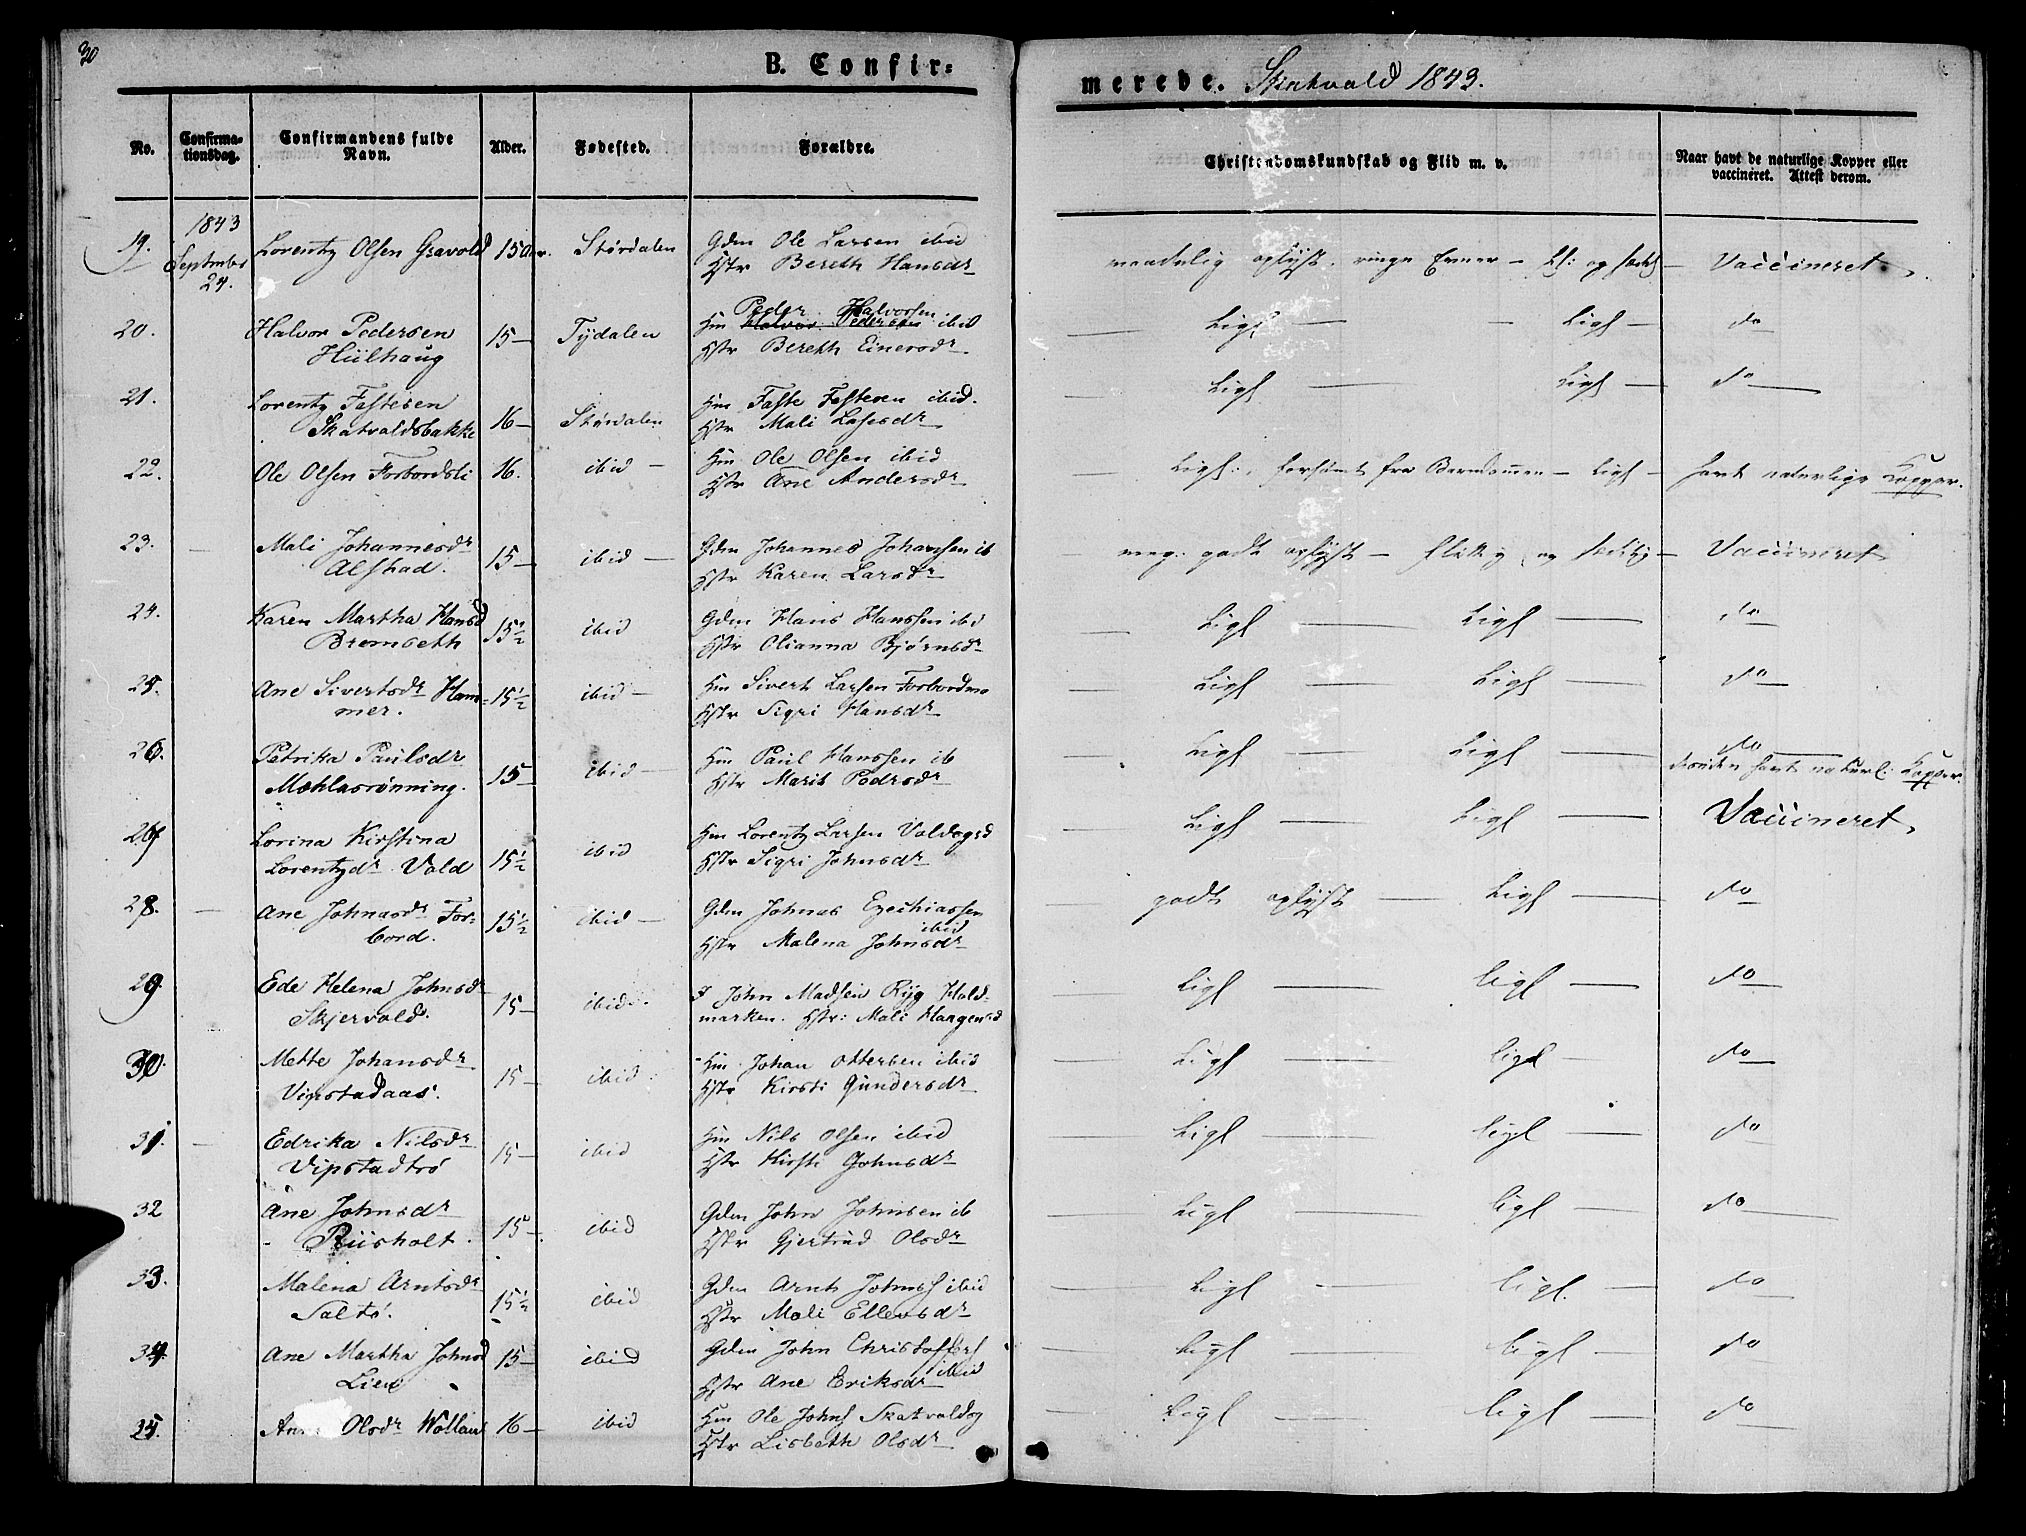 30
B. Confirmerede. Skatvold 1843.
No. Confirmationsdag. Confirmandens fulde Navn. Alder. Fødested. Forældre. Christendomskundskab og Flid m. v. Naar havt de naturlige Kopper eller vaccineret. Attest derom.
19. 1843 September 24. Lorentz Olsen Gravold 15 Aar. Størdalen Gdm Ole Larsen ibid
Hstr Bereth Hansdr
maadelig oplyst, ringe Evner — fl: og sædel — Vaccineret
20. Halvor Pedersen Hiilhaug 15 — Tydalen Hm Peder Halvorsen ibid
Hstr Bereth Einersdr
Ligs — Ligs — do
21. Lorentz Fastesen Skatvoldsbakke 16 — Størdalen Hm Faste Fastesen ibid.
Hstr Mali Lasesdr
Ligs — Ligs — do
22. Ole Olsen Forbordsli 16. ibid — Hm Ole Olsen ibid
Hstr Ane Andersdr
Ligs:, forsømt fra Barndommen — Ligs — havt naturlige Kopper.
23. Mali Johannesdr Alstad. 15 — ibid — Gdm Johannes Johansen ib
Hstr Karen Larsdr
meg. godt oplyst — flittig og sædelig — Vaccineret
24. Karen Martha Hansd Bremseth 15½ ibid Gdm Hans Hanssen ibid
Hstr Olianna Bjørnsdr
Ligs — Ligs — do
25. Ane Sivertsdr Hammer. 15½ ibid — Hm Sivert Larsen Forbordmo
Hstr Sigri Hansdr
Ligs — Ligs — do
26. Petrika Paulsdr Mæhlasrønning. 15 — ibid — Hm Paul Hanssen ib
Hstr Marit Pedrsdr
Ligs — Ligs — do
desuden havt naturl: Kopper.
27 Lorina Kirstina Lorentzdr Vold 15½ ibid Hm Lorentz Larsen Voldogsd
Hstr Sigri Johnsdr
Ligs — Ligs — Vaccineret,
28. Ane Johnasdr Forbord. 15½ ibid — Gdm Johnas Ezechiassen ibid
Hstr Malena Johnsdr
godt oplyst — Ligs — do
29. Ede Helena Johnsdr Skjervold. 15 — ibid. John Madsen Ryg Hold-
marken. Hstr: Mali Haagensd
Ligl — ligl — do
30. Mette Johansdr Vipstadaas. 15 — ibid. Hm Johan Ottersen ibid
Hstr Kirsti Gundersdr
Ligl — ligl — do
31. Edrika Nilsdr Vipstadtrø 15 — ibid Hm Nils Olsen ibid
Hstr Kirsti Johnsdr
Ligl — ligl — do
32 Ane Johnsdr Riisholt. 15 — ibid Gdm John Johnsen ib
Hstr Gjertrud Olsdr
Ligl — ligl — do
33. Malena Arntsdr Saltø. 15½ ibid Gdm Arnt Johnss ibid
Hstr Mali Ellevsdr
Ligl — ligl. — do
34. Ane Martha Johnsd Lien 15 — ibid Gdm John Christoffers ibid
Hstr Ane Eriksdr
Ligl — ligl — do
35. Olsdr Wollan 16 — ibid Hm Ole Johns Skatvoldsg
Hstr Lisbeth Olsdr
Ligl — ligl — do